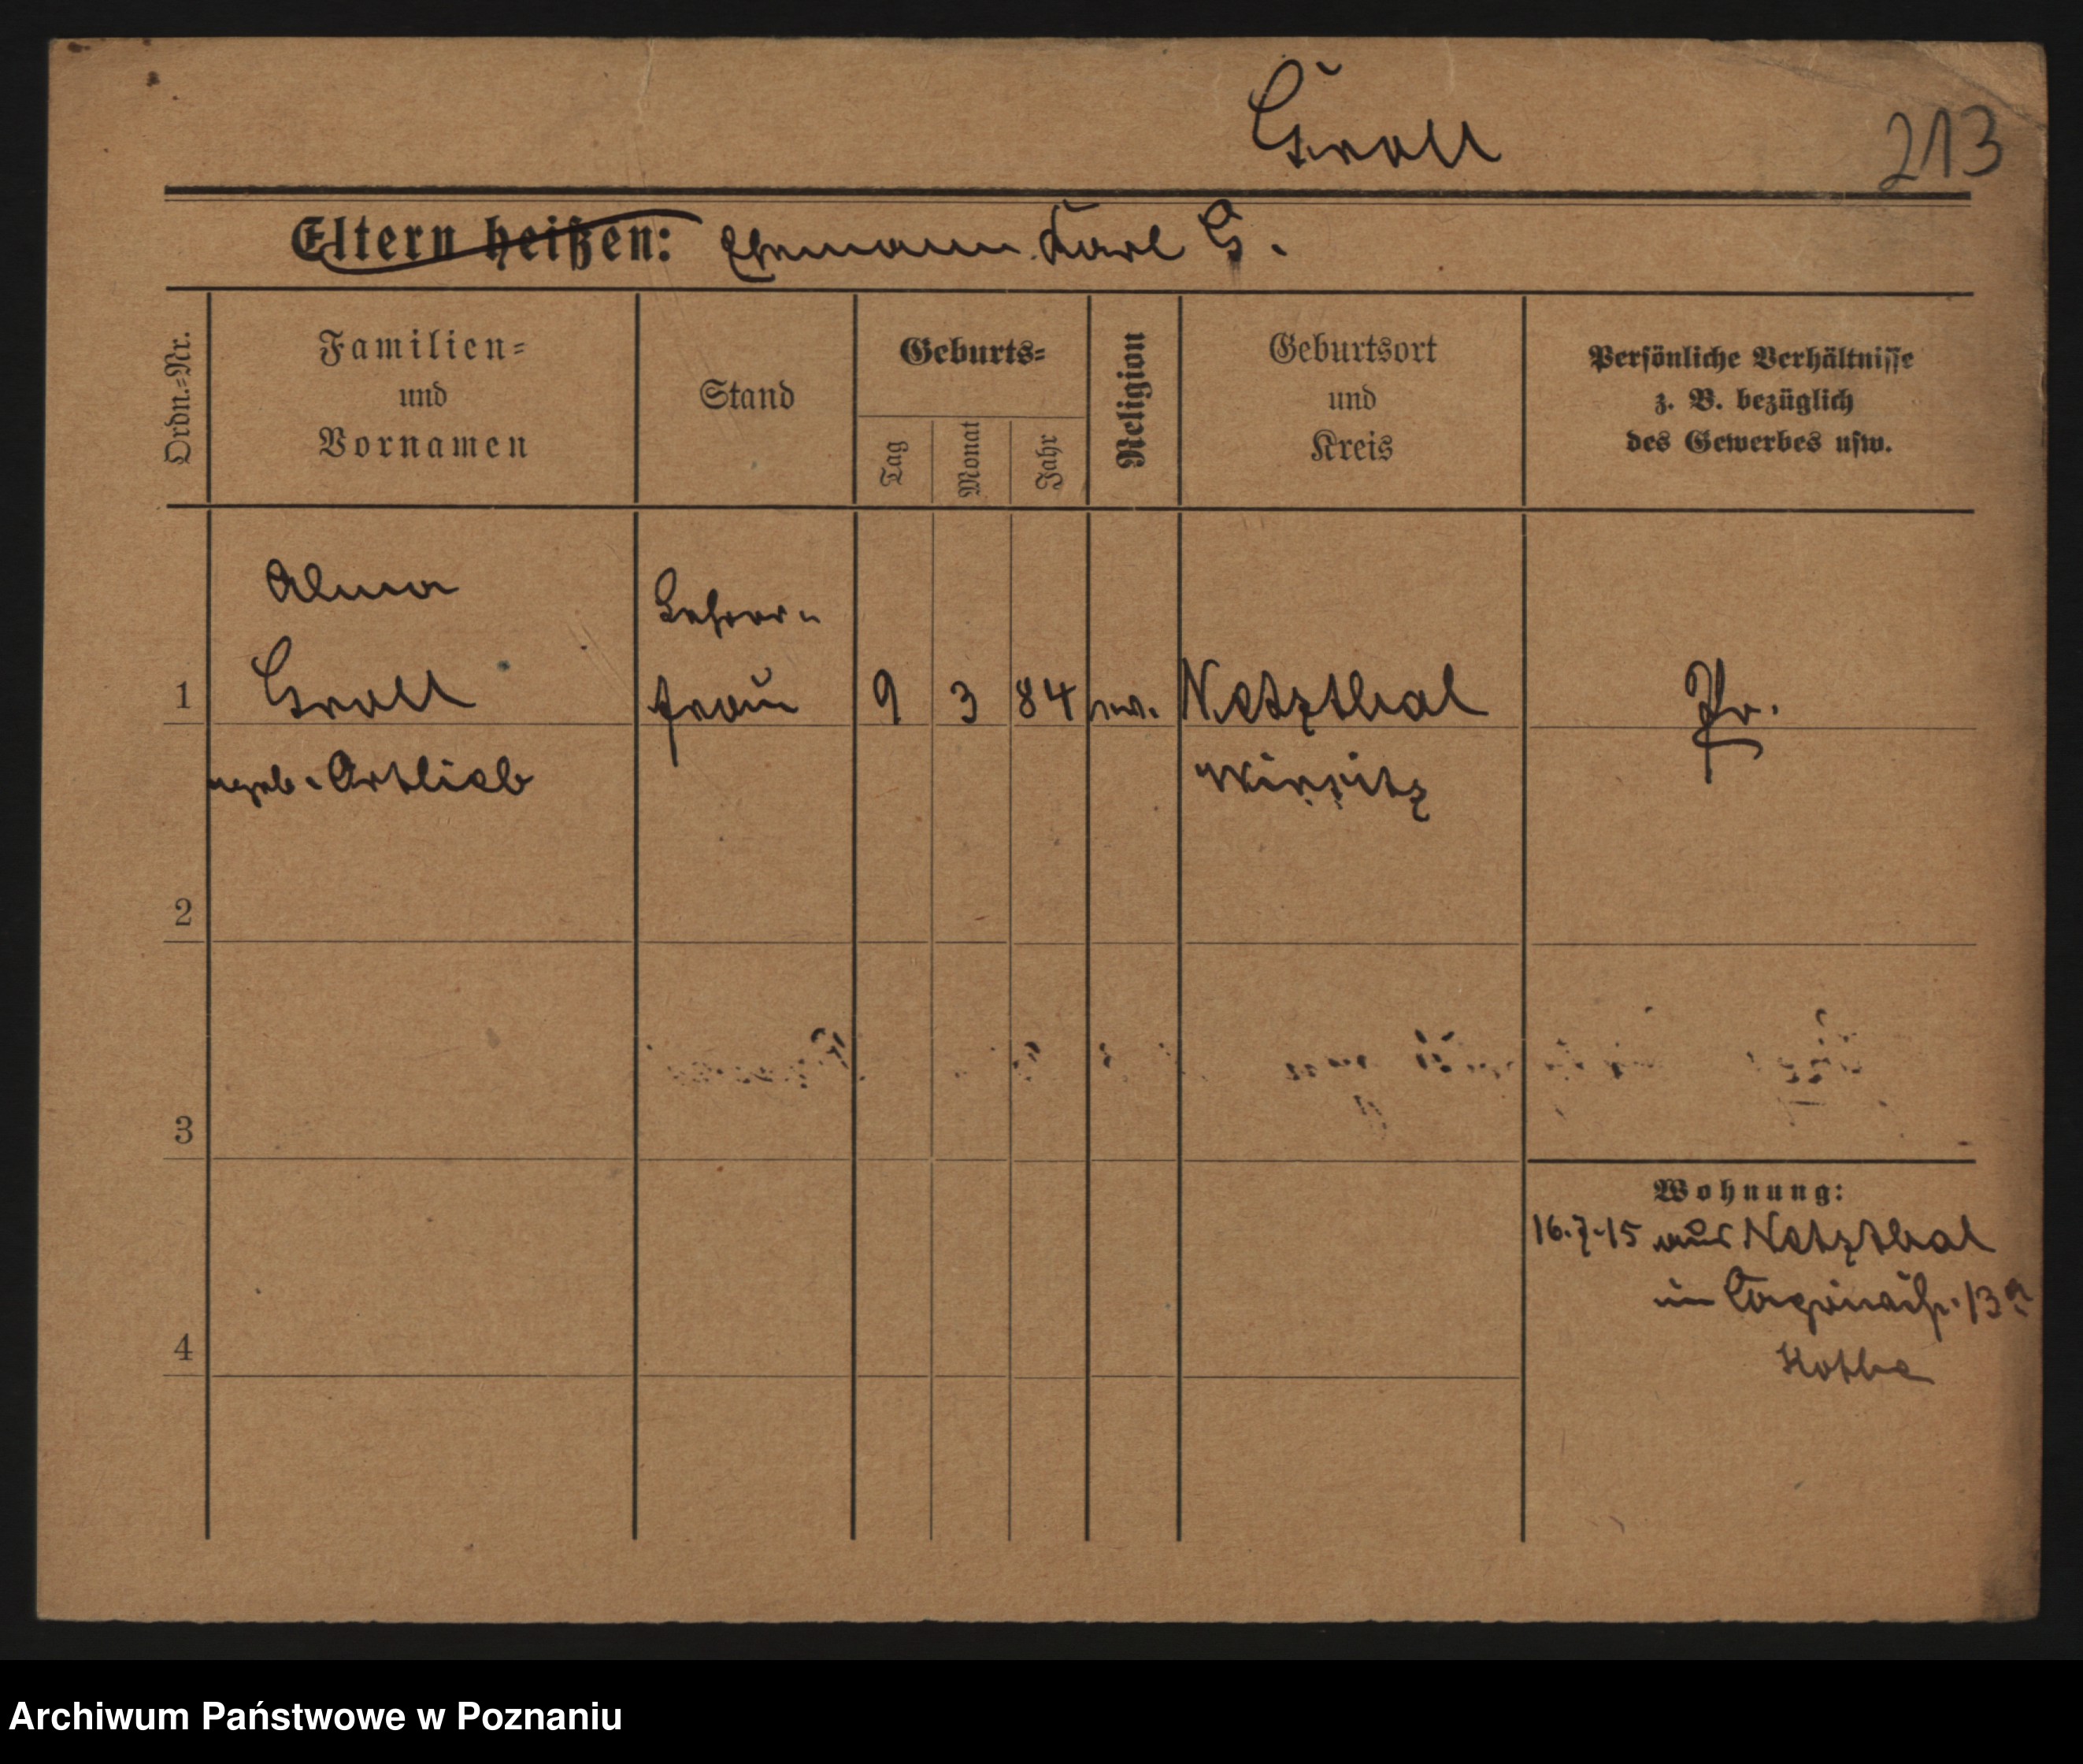 Groll
213
Eltern heißen: Ehemann Karl G.
Ordn.-Nr.
Familien-
und
Vornamen
Stand
Geburts-
Tag
Monat
Jahr
Religion
Geburtsort
und
Kreis
Persönliche Verhältnisse
z. B. bezüglich
des Gewerbes usw.
Alma
Lehrer-
1 Groll frau 9 3 84 ev. Netzthal Pr.
geb. Ortlieb Wirsitz
2
3
Wohnung:
16.7.15 aus Netzthal
13a
4
Kothe
Archiwum Państwowe w Poznaniu